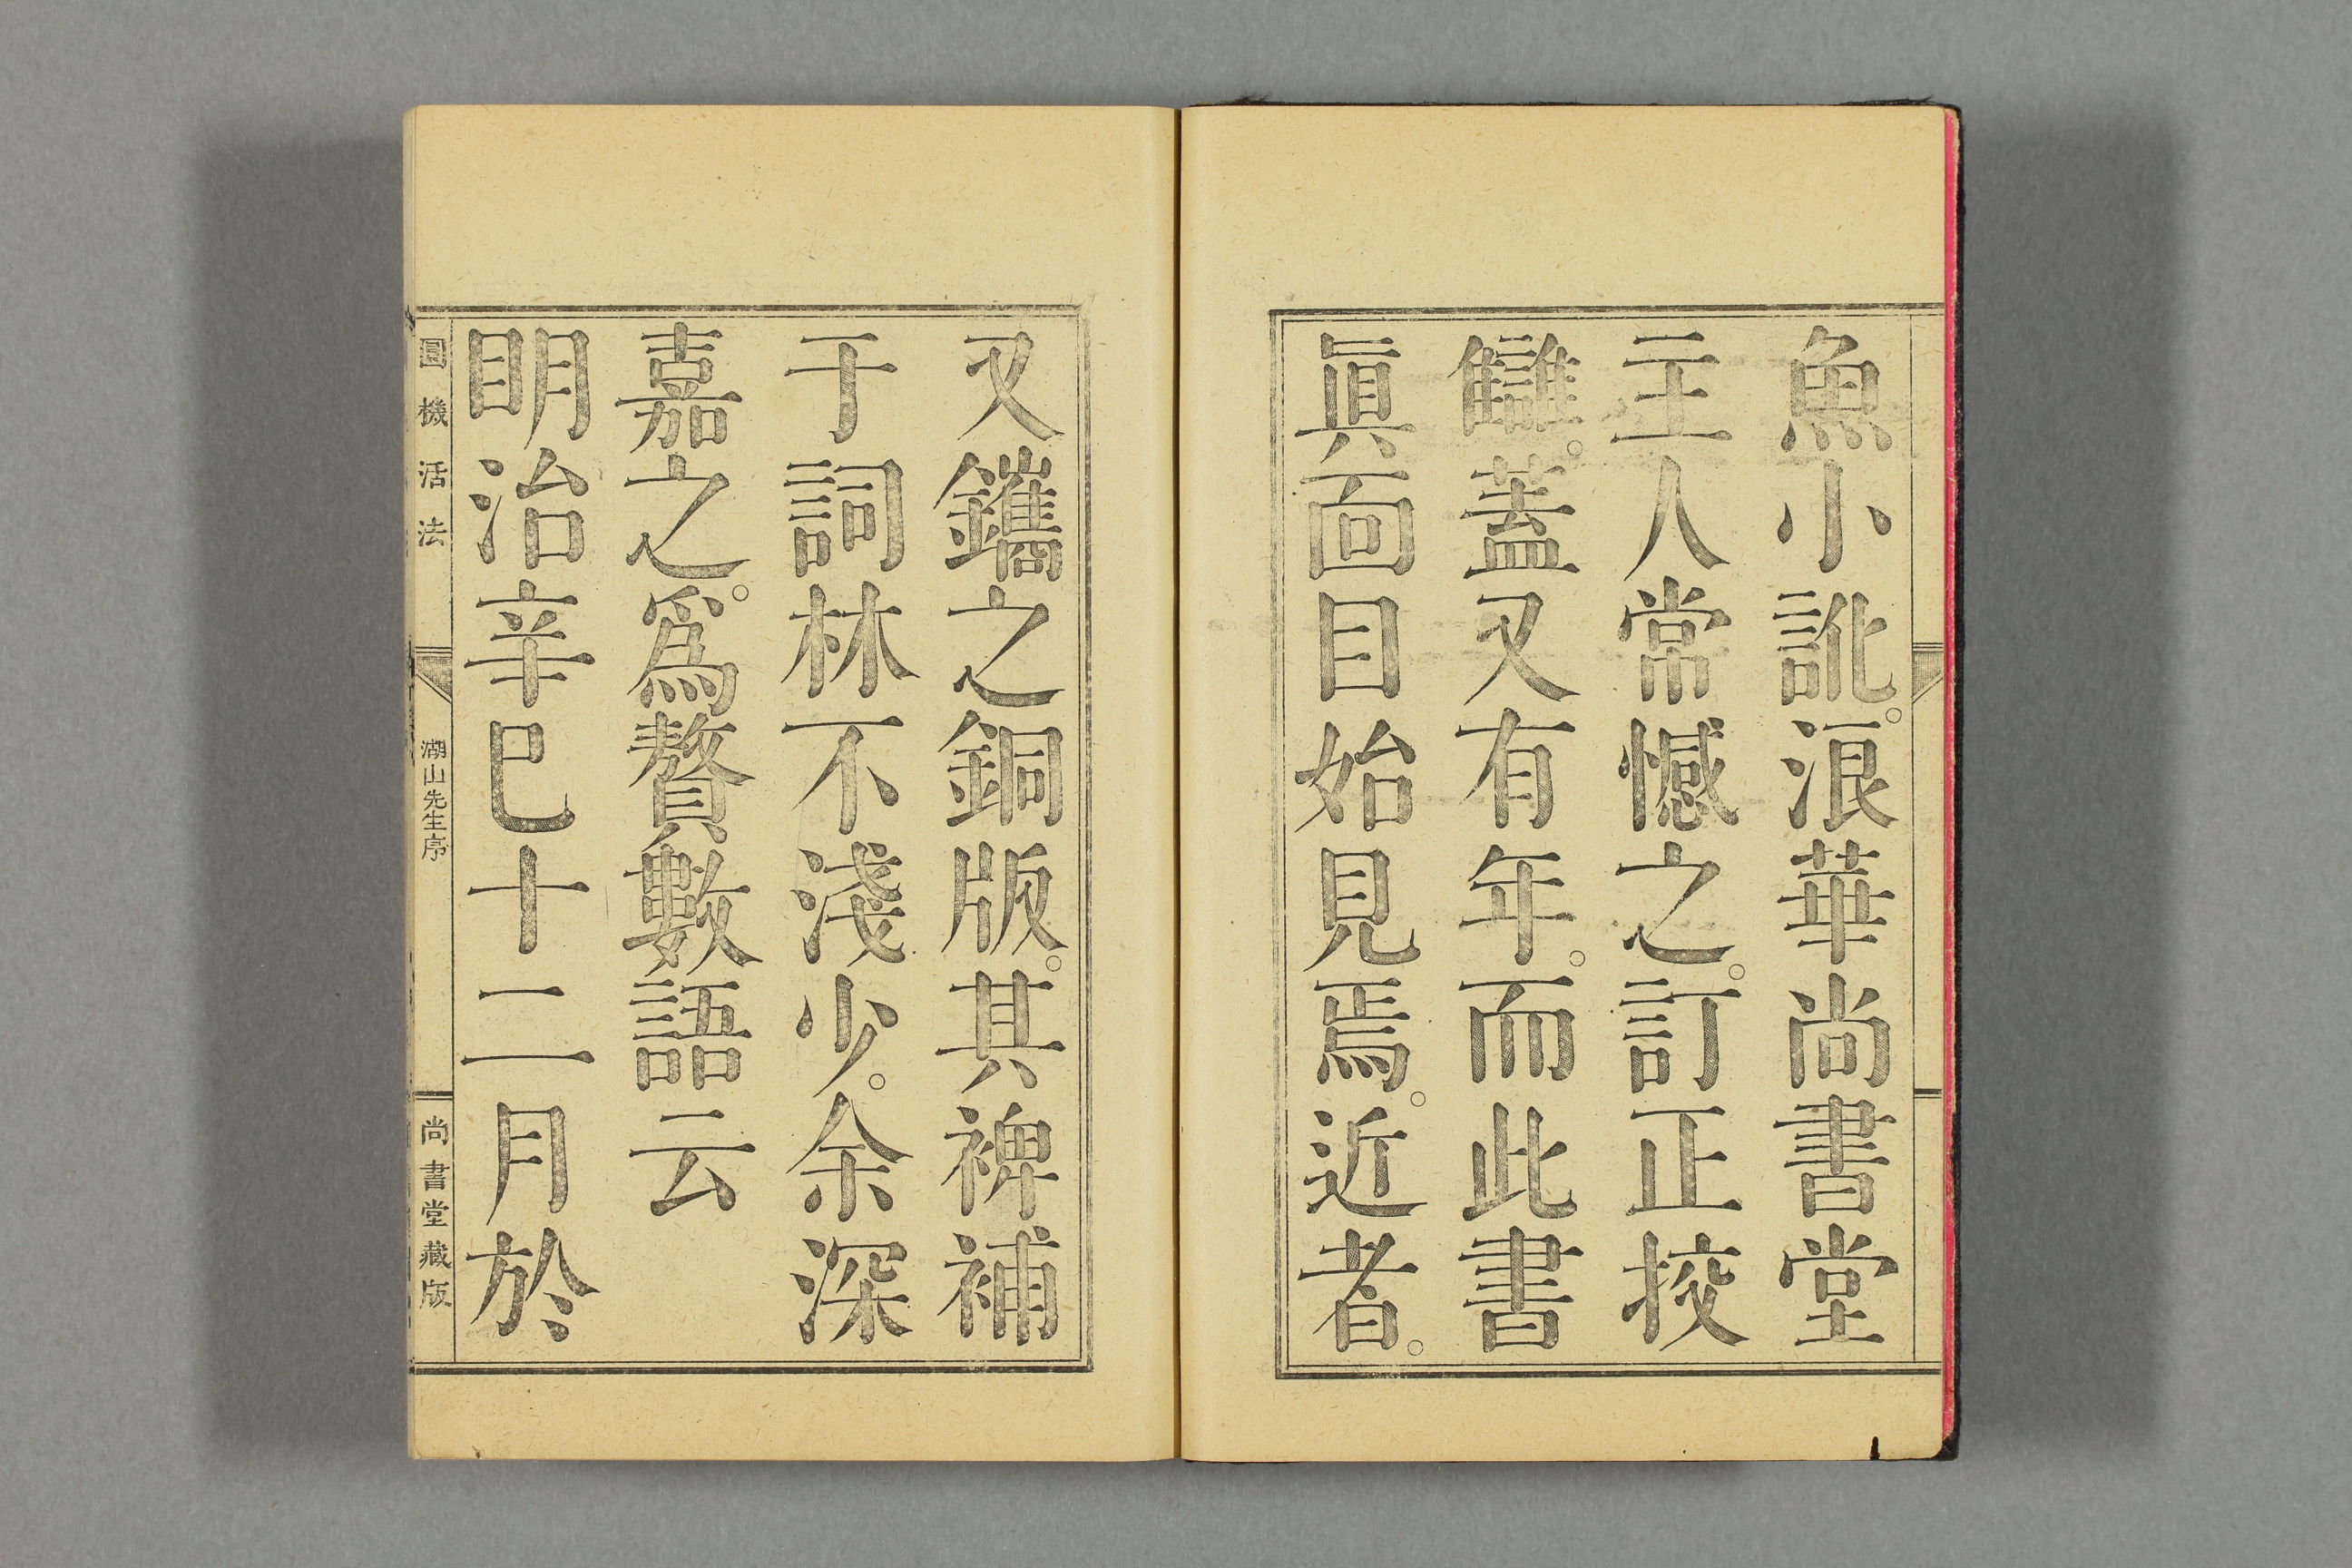 魚小訛。浪華尚書堂
主人常憾之。訂正挍
讎。蓋又有年。而此書
眞面目始見焉。近者。
又鐫之銅版。其裨補
于詞林不淺少。余深
嘉之。爲贅數語云
明治辛巳十二月於
圓機活法 湖山先生序 尚書堂藏版